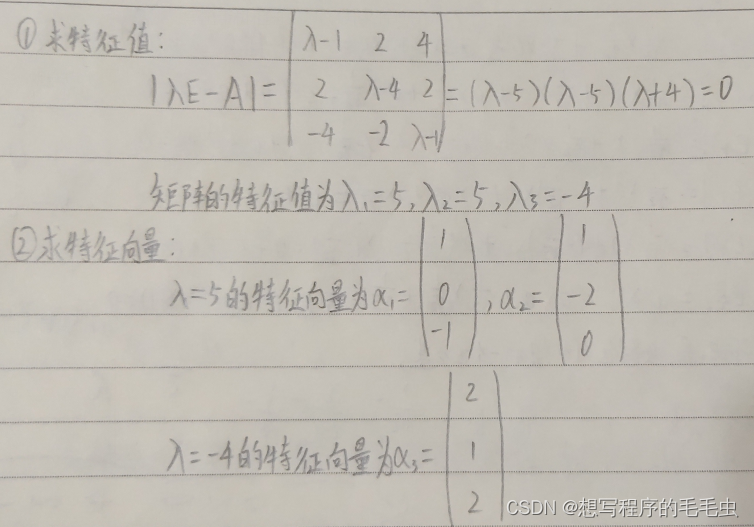 ①求特征值:
|λE-A|= |λ-1 2 4|
|2 λ-4 2| =(λ-5)(λ-5)(λ+4)=0
|-4 -2 λ-1|
矩阵的特征值为λ₁=5,λ₂=5,λ₃=-4
②求特征向量:
λ=5的特征向量为α₁= (1 0 -1) ,α₂= (1 -2 0)
λ=-4的特征向量为α₃= (2 1 2)
CSDN @想写程序的毛毛虫